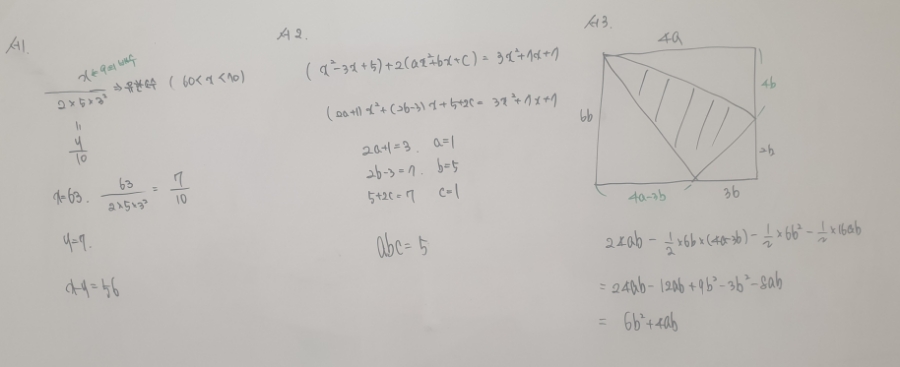 A1.
x는 9의 배수
x / 2×5×3² ⇒ 유한소수 (60<x<70)
=
y/10
x=63. 63 / 2×5×3² = 7/10
y=7.
x-y=56
A2.
(x²-3x+5)+2(ax²+bx+c) = 3x²+7x+7
(2a+1)x²+(2b-3)x+5+2c = 3x²+7x+7
2a+1=3. a=1
2b-3=7. b=5
5+2c=7 c=1
abc=5
A3.
4a
4b
6b
2b
4a-3b
3b
24ab - 1/2×6b×(4a-3b) - 1/2×6b² - 1/2×16ab
= 24ab-12ab+9b²-3b²-8ab
= 6b²+4ab